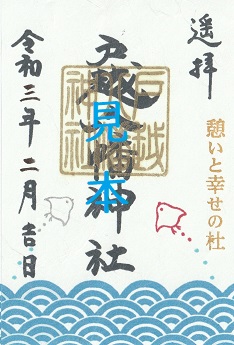 遥拝
憩いと幸せの杜
戸越八幡神社
戸越
神社
見本
令和三年二月吉日